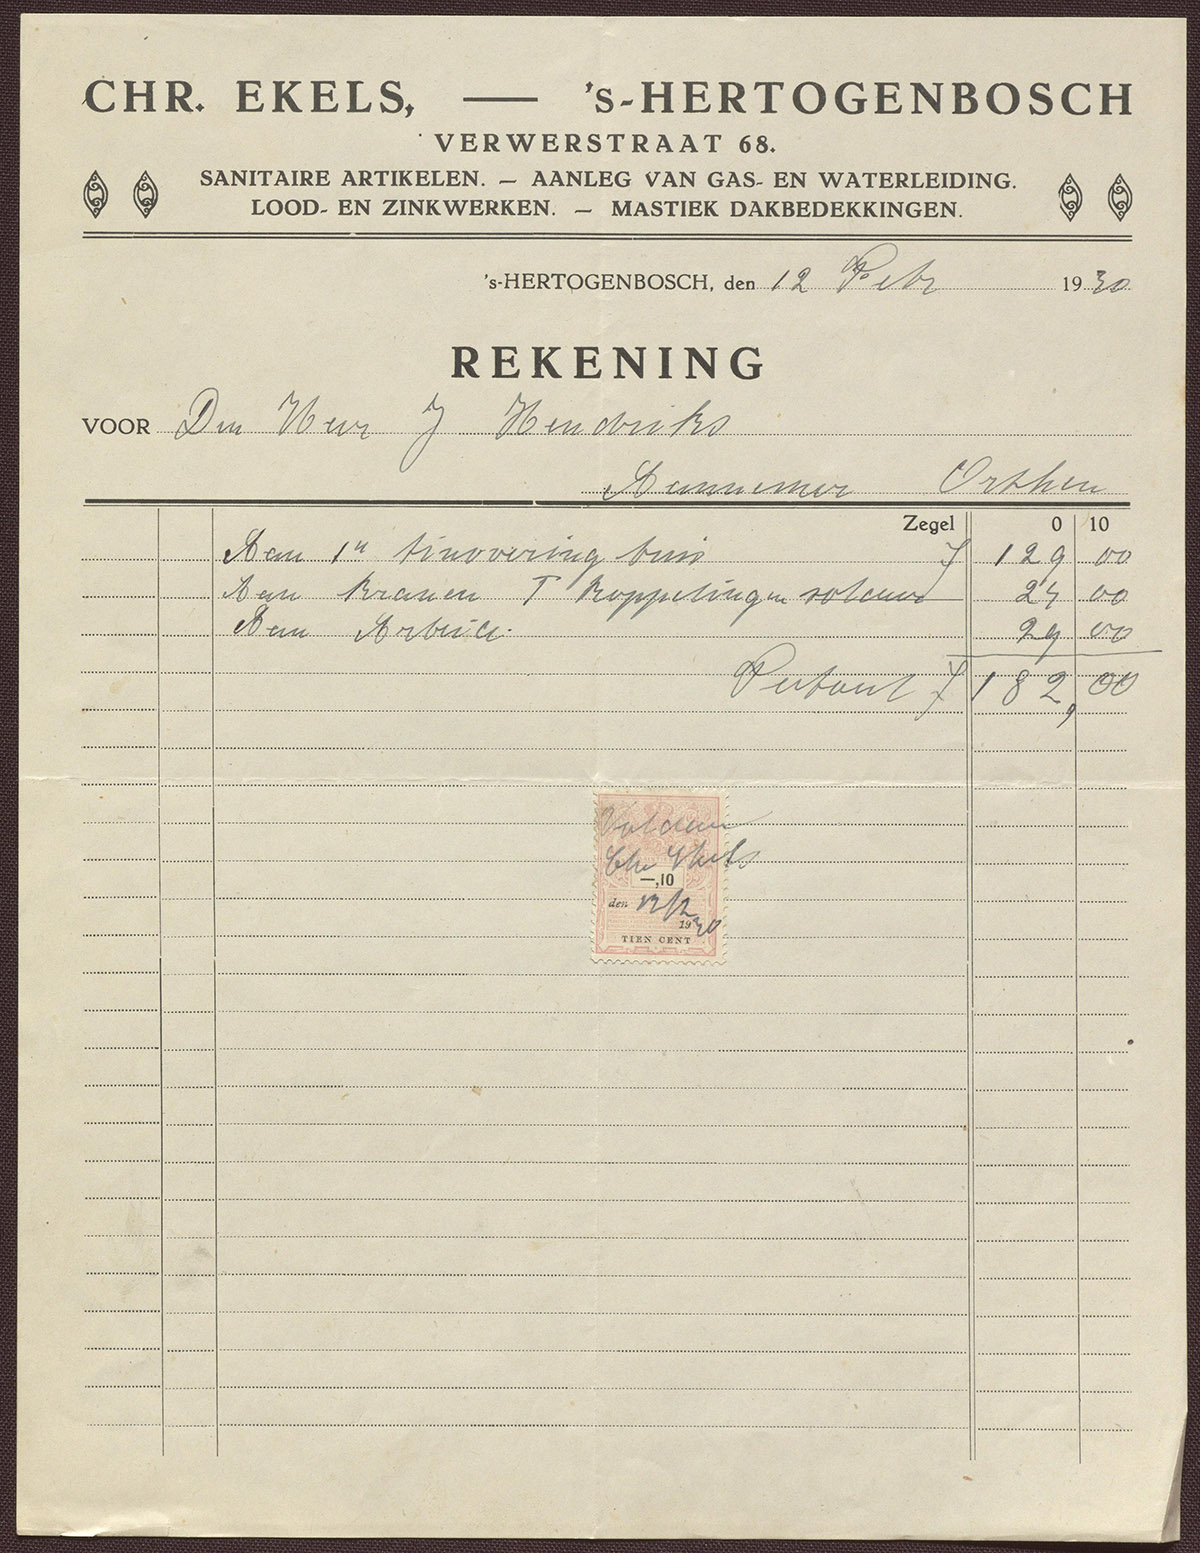 CHR. EKELS, — 's-HERTOGENBOSCH
VERWERSTRAAT 68.
SANITAIRE ARTIKELEN. — AANLEG VAN GAS- EN WATERLEIDING.
LOOD- EN ZINKWERKEN. — MASTIEK DAKBEDEKKINGEN.
's-HERTOGENBOSCH, den 12 Febr 1930
REKENING
VOOR Den Heer J Hendriks
Aannemer Orthen
Zegel 0 10
Aan 1" buis f 129 00
Aan Kranen T koppelingen soldeer 24 00
Aan Arbeid. 29 00
f 182,00
Voldaan
Chr Ekels
—,10
den 12/2
1930
TIEN CENT